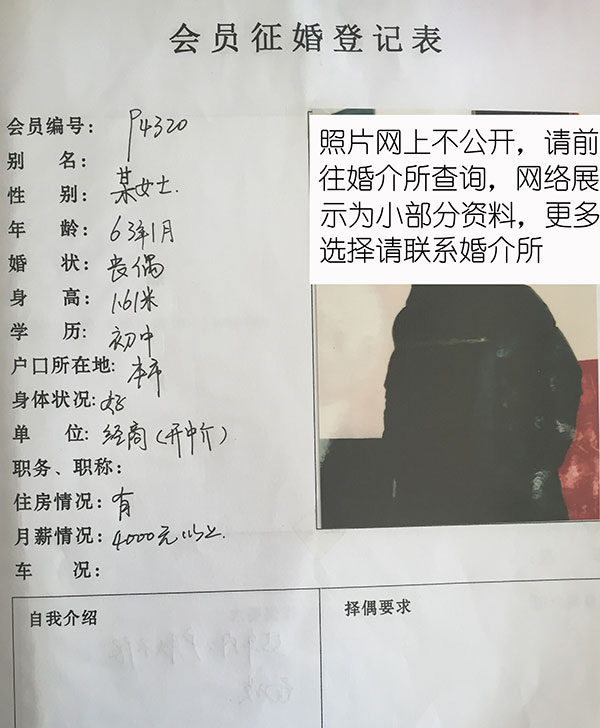 会员征婚登记表
会员编号：P4320
别 名：
性 别：某女士.
年 龄：63年1月
婚 状：丧偶
身 高：1.61米
学 历：初中
户口所在地：本市
身体状况：好
单 位：经商（开中介）
职务、职称：
住房情况：有
月薪情况：4000元以上.
车 况：
照片网上不公开，请前
往婚介所查询，网络展
示为小部分资料，更多
选择请联系婚介所
自我介绍
择偶要求